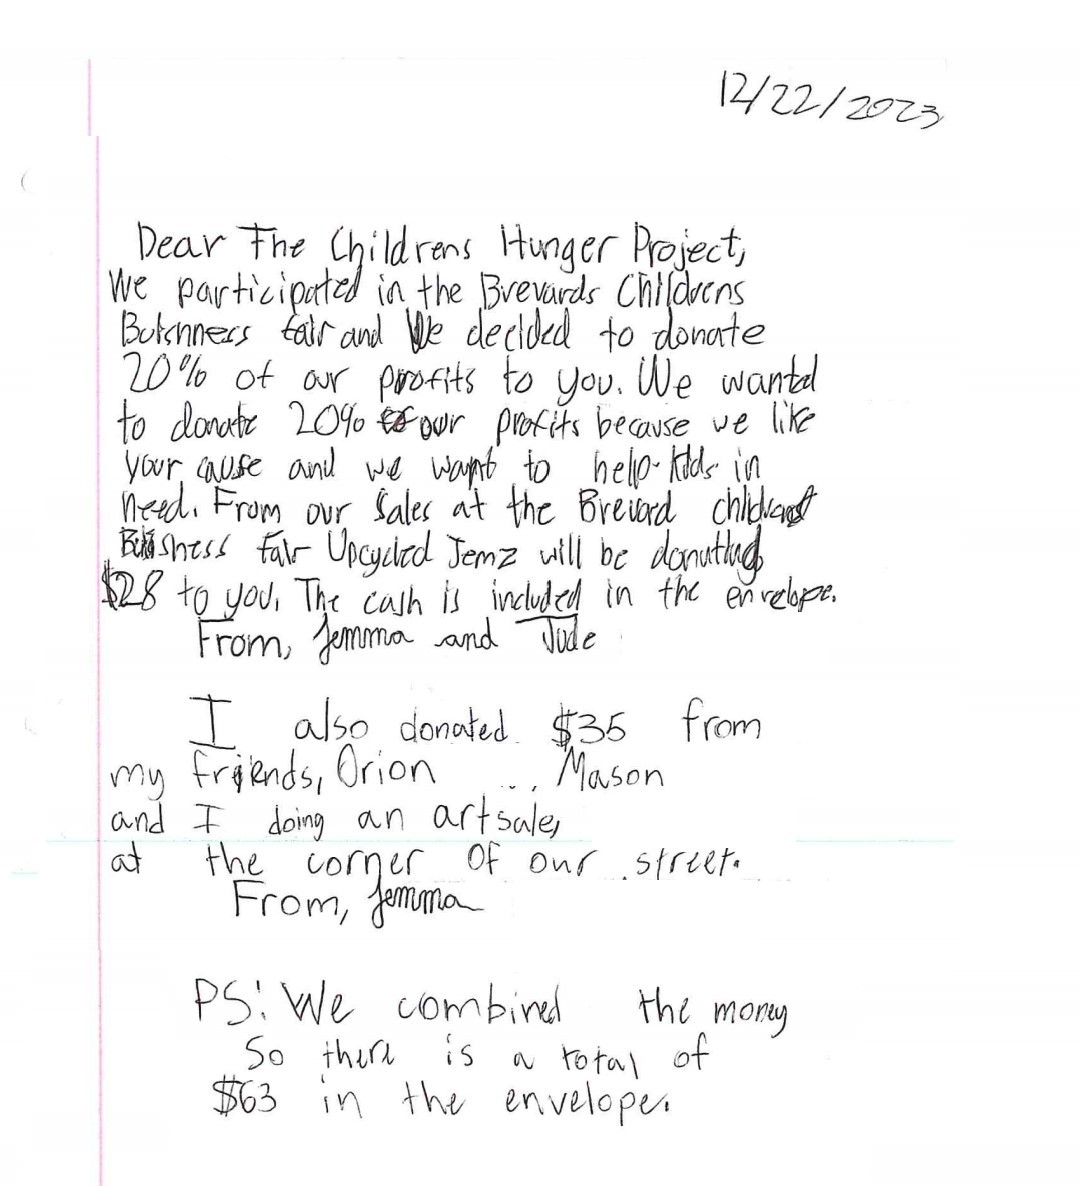 12/22/2023
Dear The Childrens Hunger Project,
We participated in the Brevards Childrens
Buisnness fair and We decided to donate
20% of our profits to you. We wanted
to donate 20% of our profits because we like
your cause and we want to help kids in
need. From our Sales at the Brevard childrens
Buisness fair Upcycled Jemz will be donating
$28 to you. The cash is included in the envelope.
From, Jemma and Jude
I also donated $35 from
my friends, Orion , Mason
and I doing an art sale,
at the corner of our street.
From, Jemma
PS: We combined the money
So there is a total of
$63 in the envelope.